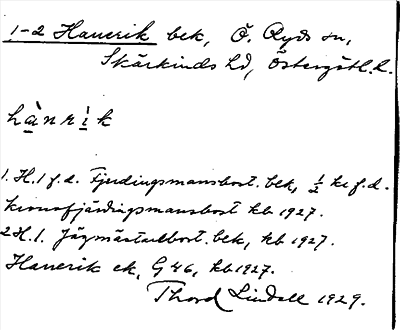 1-2 Hanerik bek, Ö. Ryds sn,
Skärkinds hd, Östergötl. l.
hànrìk
1. H. 1 f.d. Fjerdingsmansbost. bek, ½ kr f.d.
kronofjärdingsmansbost kb 1927.
2 H. 1. Jägmästarebost. bek, kb 1927.
Hanerik ek, G 46, kb 1927.
Thord Lindell 1929.